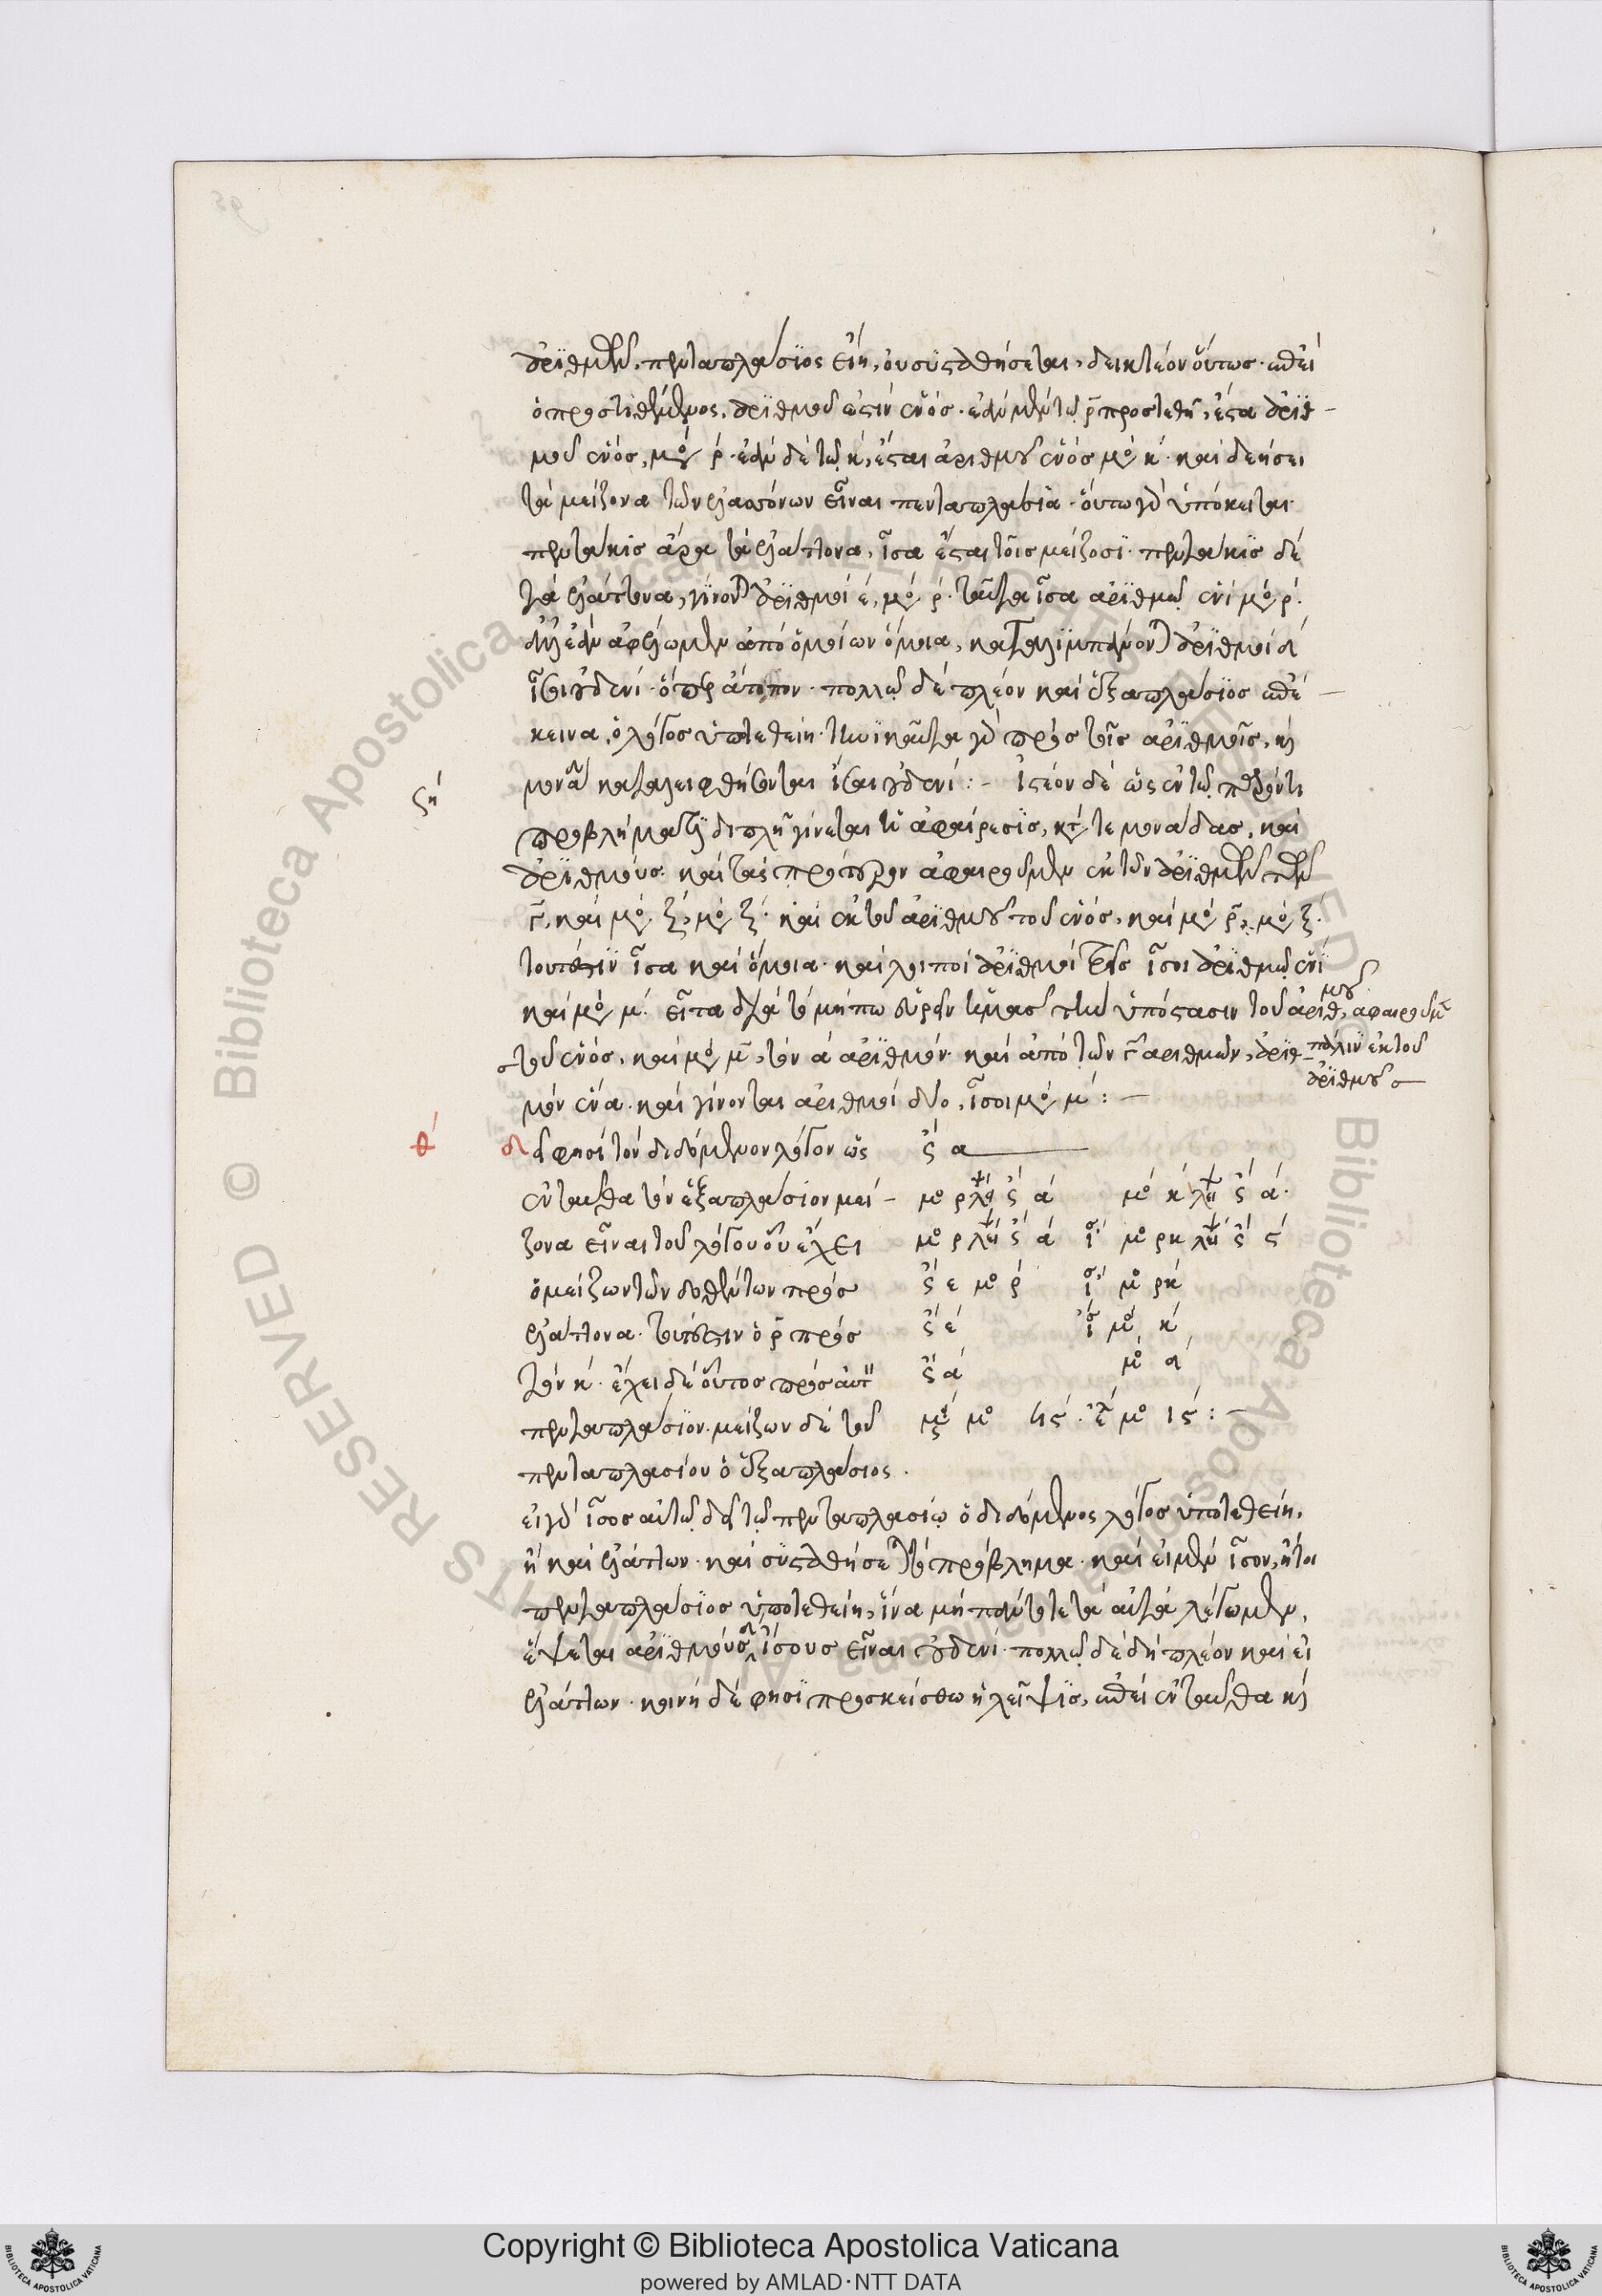 ἀριθμῶν. πενταπλάσιος εἴη, οὐ συσταθήσεται, δεικτέον οὕτως. ἐπεὶ
ὁ προστιθέμενος, ἀριθμοῦ ἐστιν ἑνός. ἐὰν μὲν τῷ ρ προστεθῆ, ἔσται ἀριθ-
μοῦ ἑνός, μο ρ. ἐὰν δὲ τῷ κ, ἔσται ἀριθμοῦ ἑνός μο κ. καὶ δεήσει
τὰ μείζονα τῶν ἐλαττόνων εἶναι πενταπλάσια. οὕτω γὰρ ὑπόκειται.
πεντάκις ἄρα τὰ ἐλάττονα, ἴσα ἔσται τοῖς μείζοσι. πεντάκις δὲ
τὰ ἐλάττονα, γίνονται ἀριθμοὶ ε, μο ρ. ταῦτα ἴσα ἀριθμῷ ἑνὶ μο ρ.
ἀλλ' ἐὰν ἀφέλωμεν ἀπὸ ὁμοίων ὅμοια, καταλιμπάνονται ἀριθμοὶ δ
ἴσοι οὐδενί. ὅπερ ἄτοπον. πολλῷ δὲ πλέον καὶ εἰ ἑξαπλάσιος ἐπέ-
κεινα, ὁ λόγος ὑποτεθείη. τηνικαῦτα γὰρ πρὸς τοῖς ἀριθμοῖς, καὶ
μονάδες καταλειφθήσονται ἴσαι οὐδενί :- ἰστέον δὲ ὡς ἐν τῷ παρόντι
ση
προβλήματι διπλῆ γίνεται ἡ ἀφαίρεσις, κατά τε μονάδας, καὶ
ἀριθμούς. καὶ τὰς πρότερον ἀφαιροῦμεν ἐκ τῶν ἀριθμῶν τῶν
γ, καὶ μο ξ, μο ξ. καὶ ἐκ τοῦ ἀριθμοῦ τοῦ ἑνός, καὶ μο ρ, μο ξ.
τουτέστιν ἴσα καὶ ὅμοια. καὶ λοιποὶ ἀριθμοὶ τρεῖς ἴσοι ἀριθμῷ ἑνὶ
καὶ μο μ. εἶτα διὰ τὸ μήπω εὑρεῖν ἡμᾶς τὴν ὑπόστασιν τοῦ ἀριθμοῦ, ἀφαιροῦμεν
πάλιν ἐκ τοῦ
ἀριθμοῦ
τοῦ ἑνός, καὶ μο μ, τὸν α ἀριθμόν. καὶ ἀπὸ τῶν γ ἀριθμῶν, ἀριθ-
μὸν ἕνα. καὶ γίνονται ἀριθμοὶ δύο, ἴσοι μο μ : -
θ
δεῖ φησὶ τὸν διδόμενον λόγον ὡς
ἐνταῦθα τὸν ἑξαπλάσιον μεί-
ζονα εἶναι τοῦ λόγου οὗ ἔχει
ὁ μείζων τῶν δοθέντων πρὸς
ἐλάττονα. τουτέστιν ὁ ρ πρὸς
τὸν κ. ἔχει δὲ οὗτος πρὸς αὐτὸν
πενταπλάσιον. μείζων δὲ τοῦ
πενταπλασίου ὁ ἑξαπλάσιος.
ς α
μο ρ λεί ς α μο κ λεί ς α.
μο ρ λεί ς α ἴσ μο ρκ λεί ς ς
ς ε μο ρ ἴσ μο ρκ
ς ε ἴσ μο κ
ς α μο δ
μο ις : -
εἰ γὰρ ἴσος αὐτῷ δὴ τῷ πενταπλασίῳ ὁ διδόμενος λόγος ὑποτεθείη,
ἢ καὶ ἐλάττων. καὶ συσταθήσεται τὸ πρόβλημα. καὶ εἰ μὲν ἴσον, ἤτοι
πενταπλάσιος ὑποτεθείη, ἵνα μὴ πάντοτε τὰ αὐτὰ λέγωμεν,
ἕψεται ἀριθμοὺς δ ἴσους εἶναι οὐδενί. πολλῷ δὲ δὴ πλέον καὶ εἰ
ἐλάττων. κοινὴ δὲ φησὶ προσκείσθω ἡ λεῖψις, ἐπεὶ ἐνταῦθα καὶ
Copyright © Biblioteca Apostolica Vaticana
powered by AMLAD·NTT DATA